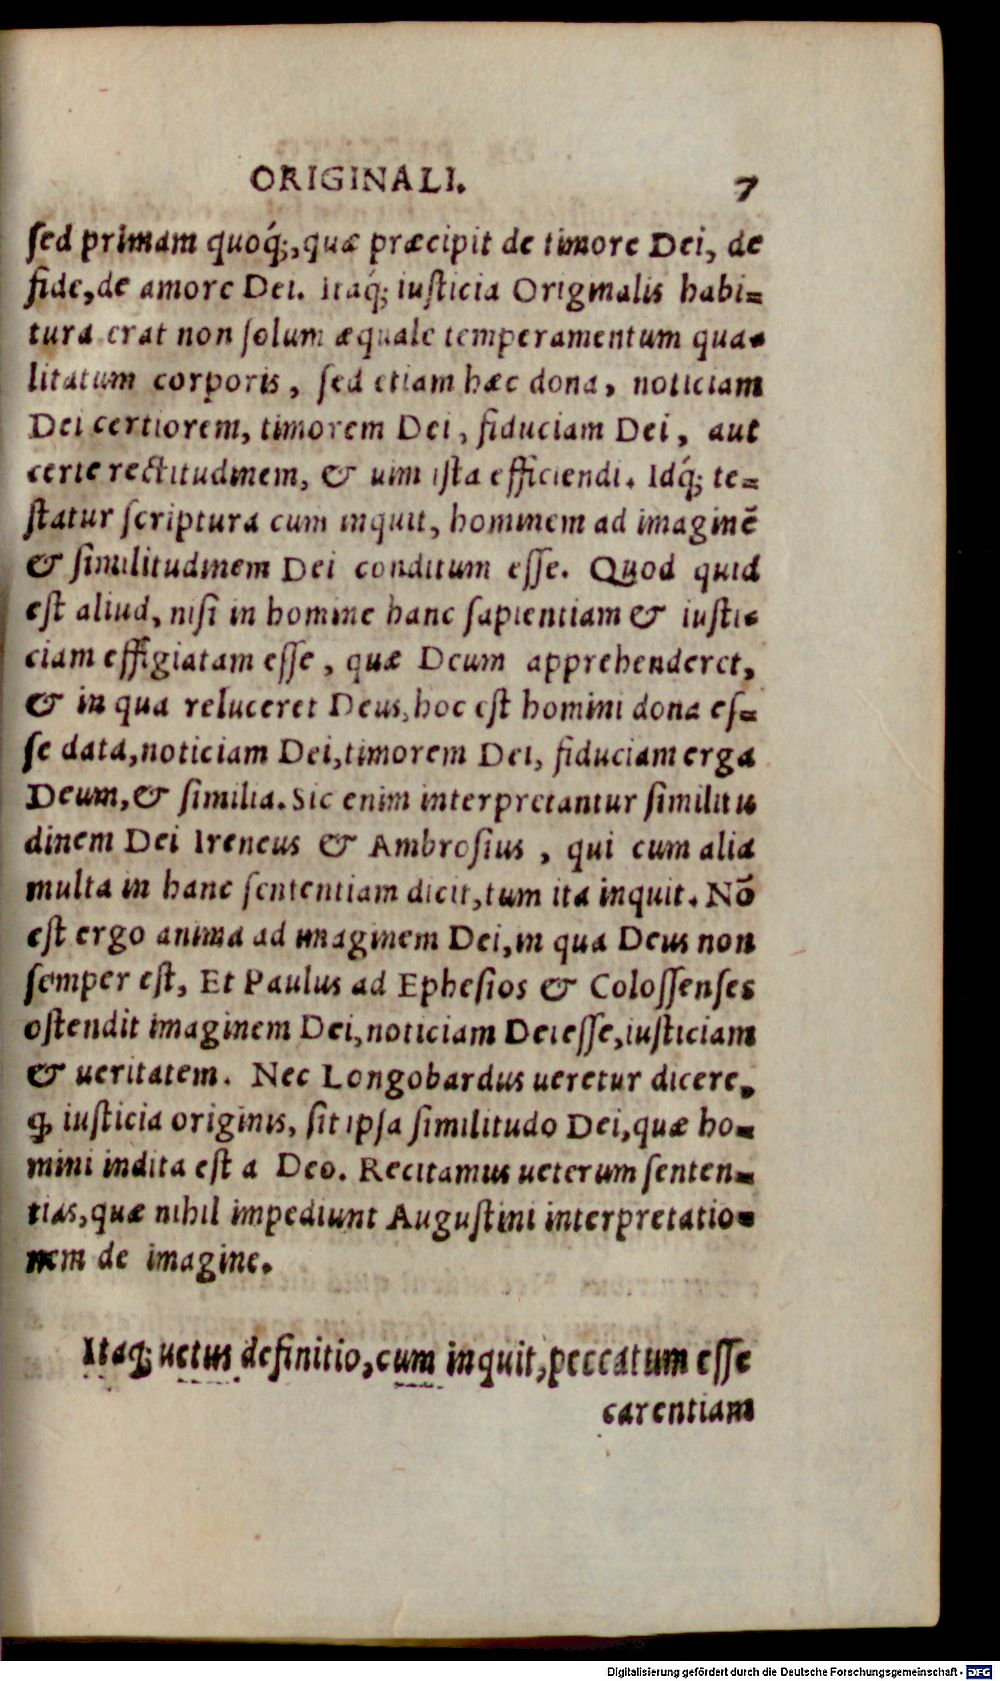 ORIGINALI. 7
sed primam quoq́;, quæ præcipit de timore Dei, de
fide, de amore Dei. Itaq́; iusticia Originalis habi=
tura erat non solum æquale temperamentum qua=
litatum corporis, sed etiam hæc dona, noticiam
Dei certiorem, timorem Dei, fiduciam Dei, aut
certe rectitudinem, & uim ista efficiendi. Idq́; te=
statur scriptura cum inquit, hominem ad imaginē
& similitudinem Dei conditum esse. Quod quid
est aliud, nisi in homine hanc sapientiam & iusti=
ciam effigiatam esse, quæ Deum apprehenderet,
& in qua reluceret Deus, hoc est homini dona es=
se data, noticiam Dei, timorem Dei, fiduciam erga
Deum, & similia. Sic enim interpretantur similitu
dinem Dei Ireneus & Ambrosius, qui cum alia
multa in hanc sententiam dicit, tum ita inquit. Nō
est ergo anima ad imaginem Dei, in qua Deus non
semper est, Et Paulus ad Ephesios & Colossenses
ostendit imaginem Dei, noticiam Dei esse, iusticiam
& ueritatem. Nec Longobardus ueretur dicere,
ꝙ iusticia originis, sit ipsa similitudo Dei, quæ ho=
mini indita est a Deo. Recitamus ueterum senten=
tias, quæ nihil impediunt Augustini interpretatio=
nem de imagine.
Itaq; uetus definitio, cum inquit, peccatum esse
carentiam
Digitalisierung gefördert durch die Deutsche Forschungsgemeinschaft - DFG